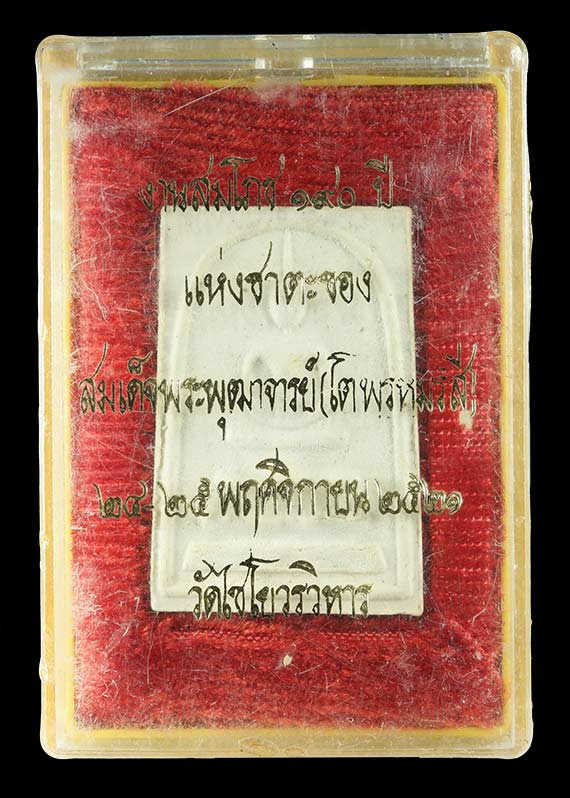 งานสมโภช ๑๙๐ ปี
แห่งชาตะของ
สมเด็จพระพุฒาจารย์(โตพรหมรังสี)
๒๔-๒๕ พฤศจิกายน ๒๕๒๑
วัดไชโยวรวิหาร